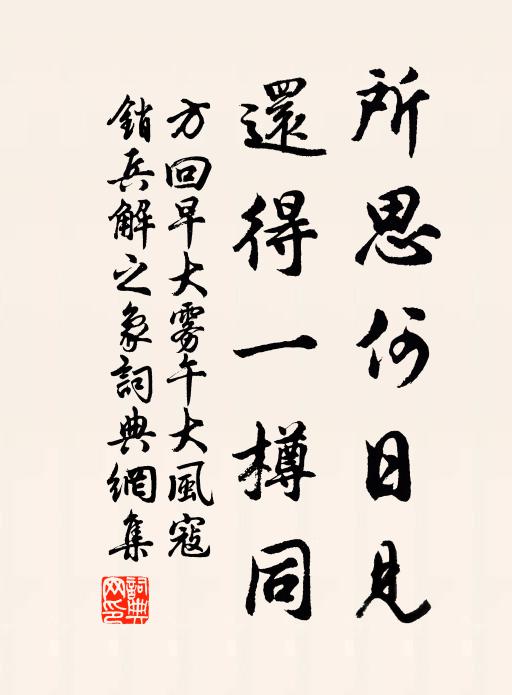 所思何日見
還得一樽同
方回早大霧午大風寇
銷兵解之象詞典網集
詞典網印